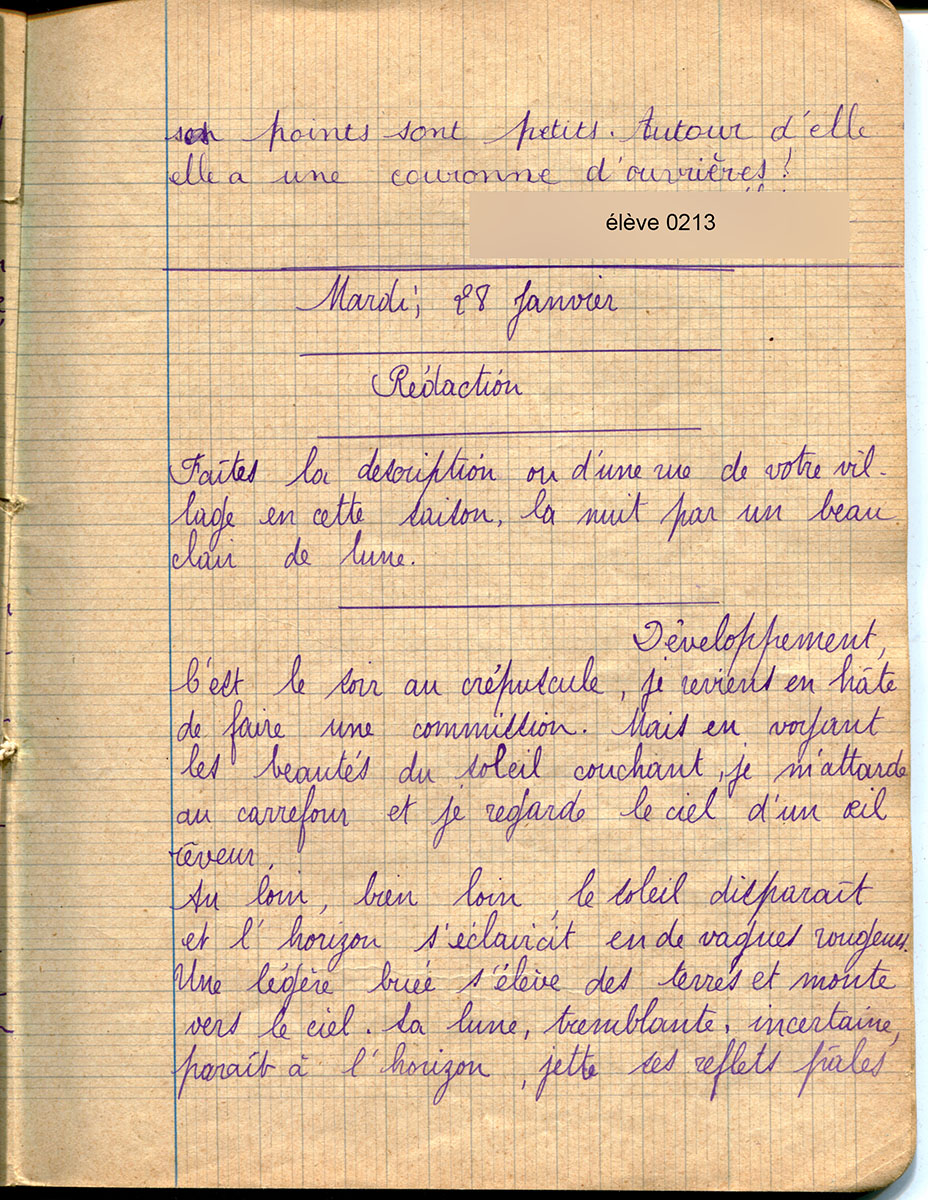 points sont petits. Autour d'elle
elle a une couronne d'ouvrières !
élève 0213
Mardi, 28 Janvier
Rédaction
Faites la description ou d'une rue de votre vil-
lage en cette saison, la nuit par un beau
clair de lune.
Développement,
C'est le soir au crépuscule, je reviens en hâte
de faire une commission. Mais en voyant
les beautés du soleil couchant, je m'attarde
au carrefour et je regarde le ciel d'un œil
rêveur,
Au loin, bien loin, le soleil disparaît
et l'horizon s'éclaircit en de vagues rougeurs.
Une légère buée s'élève des terres et monte
vers le ciel. La lune, tremblante, incertaine,
paraît à l'horizon, jette ses reflets pâles